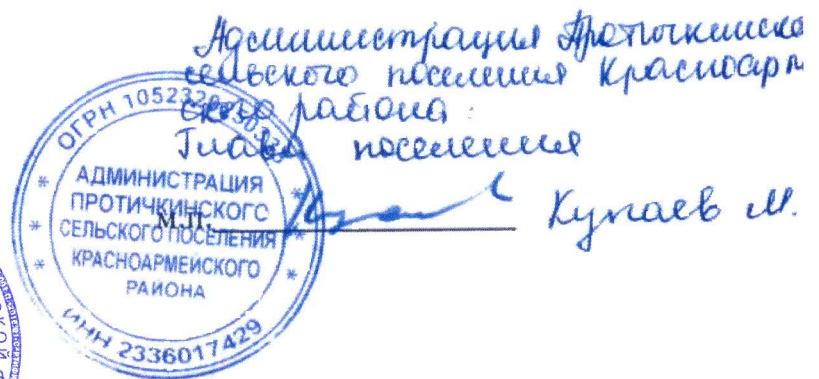 Администрация Протичкинско
сельского поселения Красноарм
ского района
Глава поселения
М.П.
ОГРН
АДМИНИСТРАЦИЯ
ПРОТИЧКИНСКОГО
СЕЛЬСКОГО ПОСЕЛЕНИЯ
КРАСНОАРМЕЙСКОГО
РАЙОНА
ИНН 2336017429